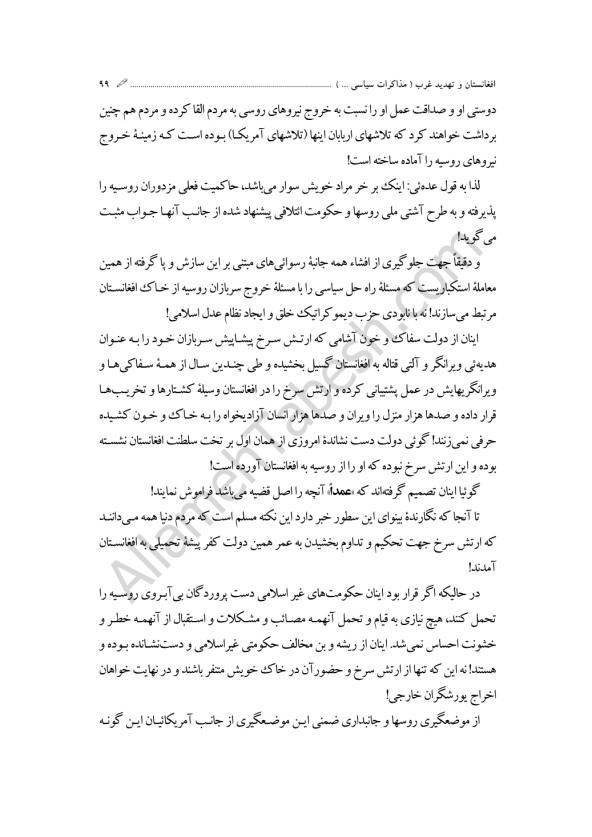 افغانستان و تهدید غرب ( مذاکرات سیاسی ... ) ........................................................................................ ۹۹
دوستی او و صداقت عمل او را نسبت به خروج نیروهای روسی به مردم القا کرده و مردم هم چنین
برداشت خواهند کرد که تلاشهای اربابان اینها (تلاشهای آمریکا) بوده است که زمینهٔ خروج
نیروهای روسیه را آماده ساخته است!
لذا به قول عده‌ئی: اینک بر خر مراد خویش سوار می‌باشد، حاکمیت فعلی مزدوران روسیه را
پذیرفته و به طرح آشتی ملی روسها و حکومت ائتلافی پیشنهاد شده از جانب آنها جواب مثبت
می‌گوید!
و دقیقاً جهت جلوگیری از افشاء همه جانبهٔ رسوائی‌های مبتنی بر این سازش و پا گرفته از همین
معاملهٔ استکباریست که مسئلهٔ راه حل سیاسی را با مسئلهٔ خروج سربازان روسیه از خاک افغانستان
مرتبط می‌سازند! نه با نابودی حزب دیموکراتیک خلق و ایجاد نظام عدل اسلامی!
اینان از دولت سفاک و خون آشامی که ارتش سرخ پیشاپیش سربازان خود را به عنوان
هدیه‌ئی ویرانگر و آلتی قتاله به افغانستان گسیل بخشیده و طی چندین سال از همهٔ سفاکی‌ها و
ویرانگریهایش در عمل پشتیبانی کرده و ارتش سرخ را در افغانستان وسیلهٔ کشتارها و تخریب‌ها
قرار داده و صدها هزار منزل را ویران و صدها هزار انسان آزادیخواه را به خاک و خون کشیده
حرفی نمی‌زنند! گوئی دولت دست نشاندهٔ امروزی از همان اول بر تخت سلطنت افغانستان نشسته
بوده و این ارتش سرخ نبوده که او را از روسیه به افغانستان آورده است!
گوئیا اینان تصمیم گرفته‌اند که «عمداً» آنچه را اصل قضیه می‌باشد فراموش نمایند!
تا آنجا که نگارندهٔ بینوای این سطور خبر دارد این نکته مسلم است که مردم دنیا همه می‌دانند
که ارتش سرخ جهت تحکیم و تداوم بخشیدن به عمر همین دولت کفر پیشهٔ تحمیلی به افغانستان
آمدند!
در حالیکه اگر قرار بود اینان حکومت‌های غیر اسلامی دست پروردگان بی‌آبروی روسیه را
تحمل کنند، هیچ نیازی به قیام و تحمل آنهمه مصائب و مشکلات و استقبال از آنهمه خطر و
خشونت احساس نمی‌شد. اینان از ریشه و بن مخالف حکومتی غیراسلامی و دست‌نشانده بوده و
هستند! نه این که تنها از ارتش سرخ و حضورآن در خاک خویش متنفر باشند و در نهایت خواهان
اخراج یورشگران خارجی!
از موضعگیری روسها و جانبداری ضمنی این موضعگیری از جانب آمریکائیان این گونه
AllamehTabesh.com